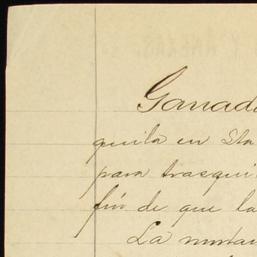 Ganad
quila en Sta
para trasqui
fin de que la
La